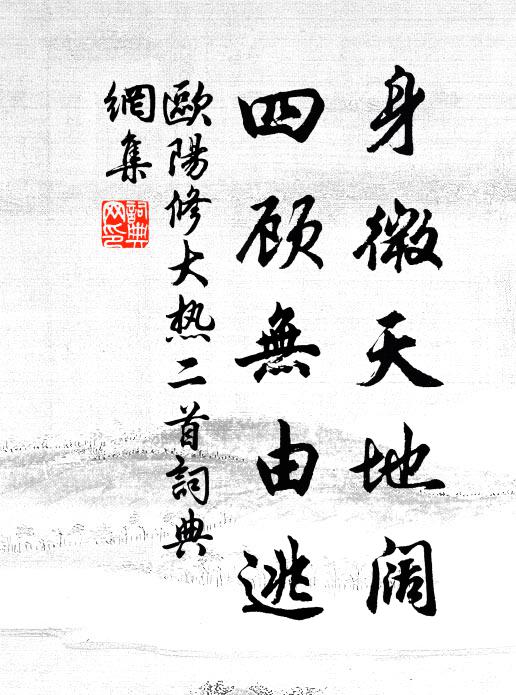 身微天地阔
四顾無由逃
歐陽修大热二首詞典
網集
詞典
网印